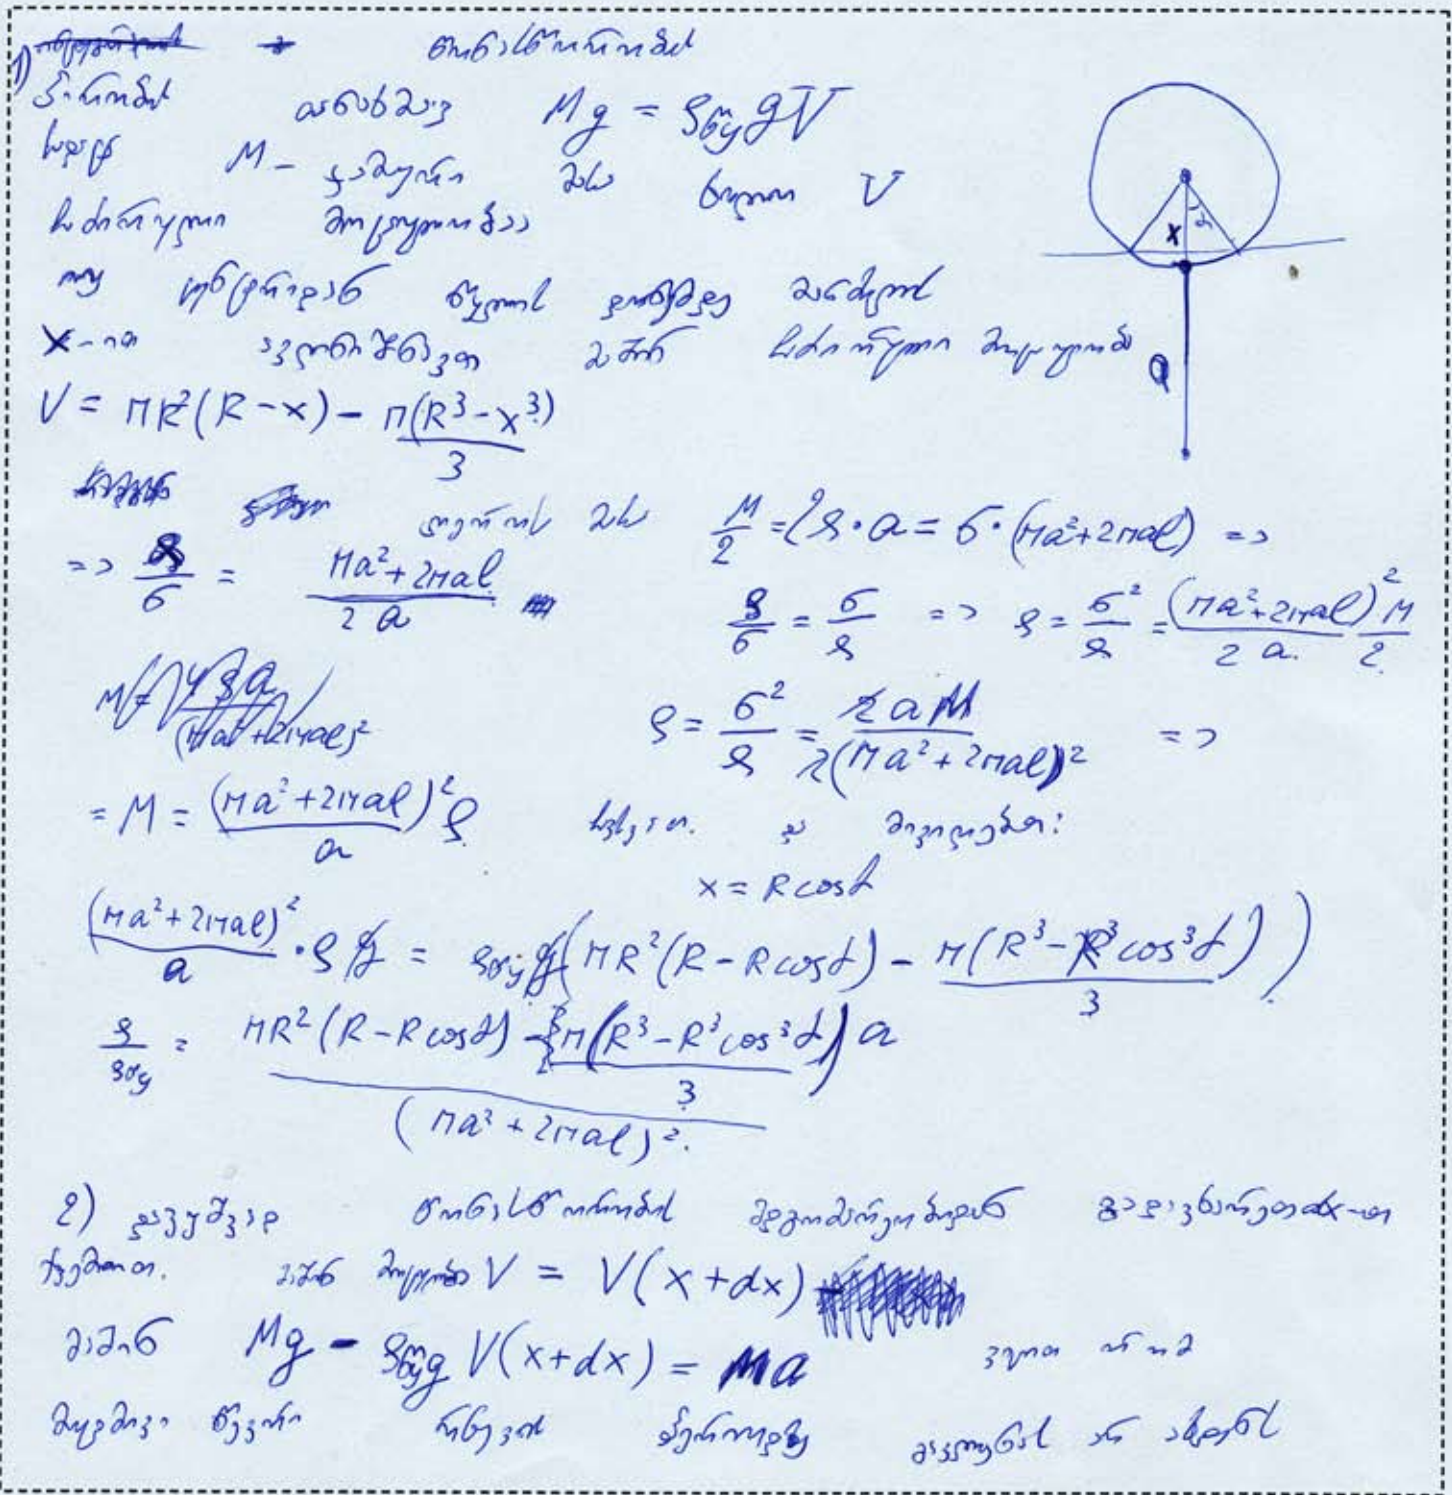 1) წონასწორობის
პირობის თანახმად Mg = ρწყ gV
სადაც M - ჯამური მასა ხოლო V
ჩაძირული მოცულობაა
თუ ცენტრიდან წყლის დონემდე მანძილს
x-ით ავღნიშნავთ მაშინ ჩაძირული მოცულობა
V = πR²(R-x) - π(R³-x³)/3
ღეროს მასა M/2 = 2λ·a = σ·(πa²+2πal) =>
=> λ/σ = (πa²+2πal)/2a
ρ/σ = σ/λ => ρ = σ²/λ = (πa²+2πal)²/2a · M/2
ρ = σ²/λ = 2aM/2(πa²+2πal)² =>
= M = (πa²+2πal)²/a ρ ჩავსვათ. და მივიღებთ:
x = R cosα
(πa²+2πal)²/a · ρg = ρწყ g(πR²(R-Rcosα) - π(R³-R³cos³α)/3)
ρ/ρწყ = (πR²(R-Rcosα) - π(R³-R³cos³α)/3) a / (πa²+2πal)².
2) დავუშვათ წონასწორობის მდგომარეობიდან გადავხარეთ dx-ით
ქვემოთ. მაშინ მოცულობა V = V(x+dx)
მაშინ Mg - ρწყg V(x+dx) = Ma ვიცით რომ
მუდმივი წევრი რხევის პერიოდზე გავლენას არ ახდენს
x
α